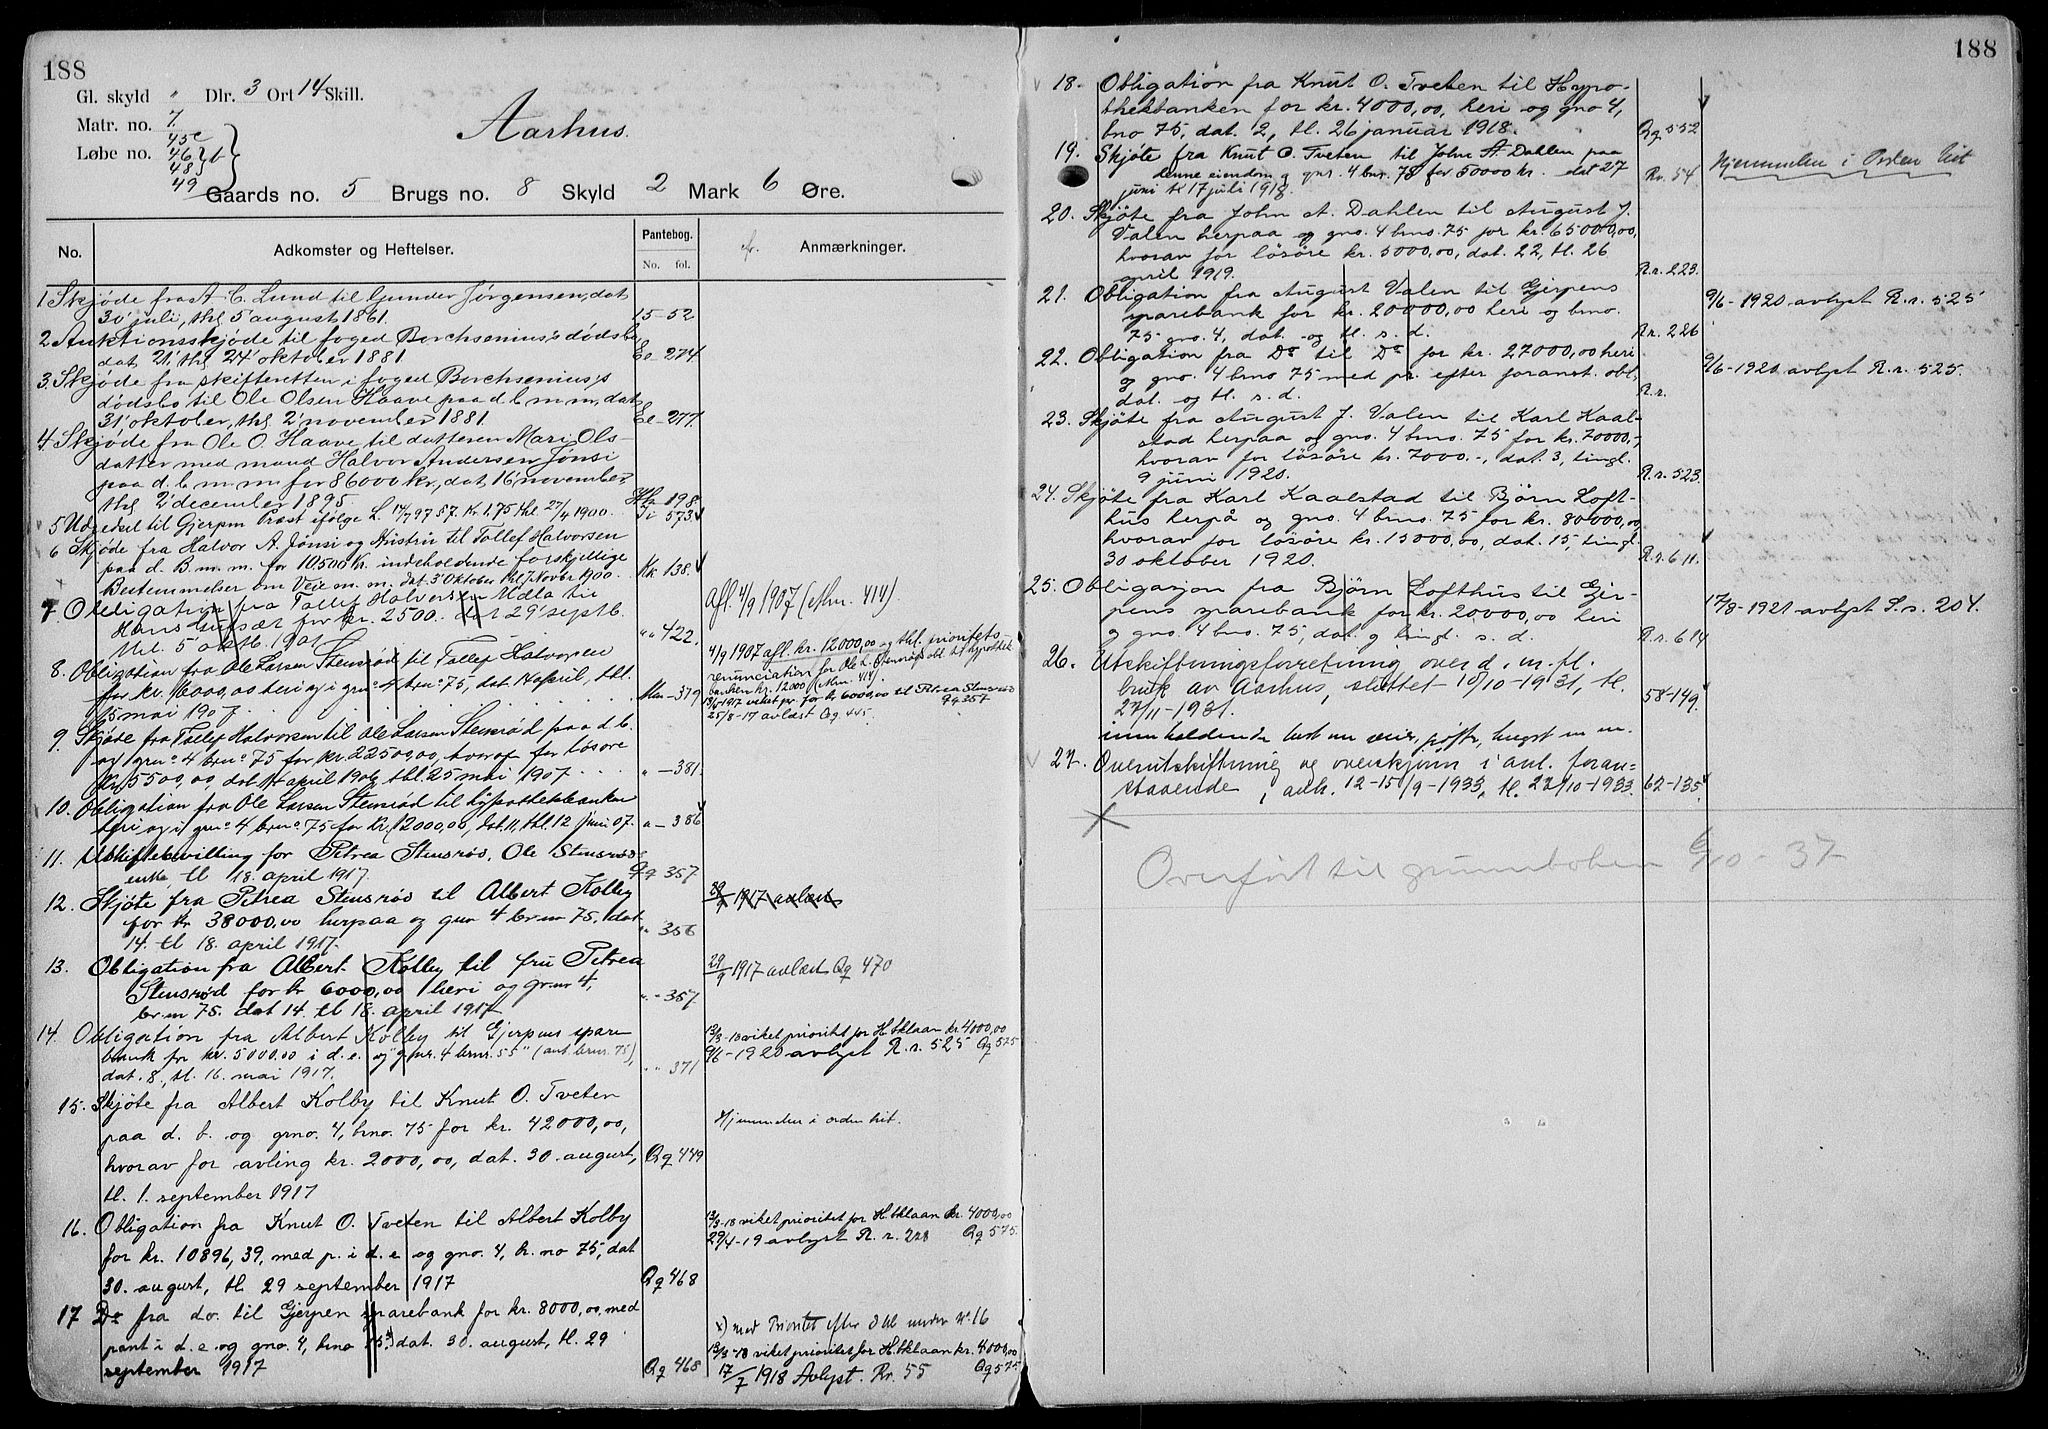 188
Gl. skyld " Dlr. 3 Ort 14 Skill.
Matr. no. 7.
Løbe no. 45c
46 b
48
49
Aarhus.
Gaards no. 5 Brugs no. 8 Skyld 2 Mark 6 Øre.
No. Adkomster og Heftelser. Pantebog. No. fol. Anmærkninger.
1 Skjøde fra A. C. Lund til Gunder Jørgensen, dat
30' juli, thl 5' august 1861. 15-52
2 Auktionsskjøde til foged Borchsenius's dødsbo
dat 21' thl 24' oktober 1881. El-274
3 Skjøde fra skifteretten i foged Borchsenius's
dødsbo til Ole Olsen Haave paa d b m m, dat
31' oktober, thl 2' november 1881. El-277.
4 Skjøde fra Ole O Haave til datteren Mari Ols-
datter med mand Halvor Andersen Jønsi
paa d. b m m for 8600 kr, dat 16' november,
thl 2' december 1895. 198.
5 Udgedsel til Gjerpen Præst ifølge L. 14/7 97 § 7. Kr. 1.75 thl. 27/4 1900. Ii 573.
6 Skjøde fra Halvor A. Jønsi og Hustru til Tollef Halvorsen
paa d. B. m. m. for 10500 Kr. indeholdende forskjellige
Bestemmelser om Veie m. m. dat. 3 Oktober thl 7 Novbr 1900. Kk 138.
7. Obligation fra Tollef Halvorsen til
Hans for kr. 2500. dat 29' septb.
thl. 5' oktb. 1901. " " 422. Afl. 4/9 1907 (Mm. 414).
8. Obligation fra Ole Larsen Stensrød til Tollef Halvorsen
for kr. 16000,00 heri og i grno 4 brno 75, dat. 14 april, thl.
25 mai 1907. Mm-379
4/9 1907 afl. kr. 12000,00 og thl. prioritets-
renunciation for Ole L. Stensrøds obl. til hypothek-
banken kr. 12000 (Mm. 414)
1917 veket pr. for kr 6000,00 til Petrea Stensrød
Qq 357
25/8-17 avlæst Qq. 445.
9. Skjøde fra Tollef Halvorsen til Ole Larsen Stensrød paa d. b.
og grno 4 brno 75 for kr 22500,00, hvoraf for løsøre
kr. 5500,00, dat 14 april 1906 thl 25 mai 1907. " - 381.
10. Obligation fra Ole Larsen Stensrød til hypothekbanken
heri og i grno 4 brno 75 for kr. 12000,00, dat. 11, thl. 12 juni 07. " - 386
11. Uskiftebevilling for Petrea Stensrød, Ole Stensrøds
enke tl 18. april 1917. Qq 357
12. Skjøte fra Petrea Stensrød til Albert Kolby
for kr 38000,00 herpaa og gnr 4 br.nr 75. dat
14. tl 18. april 1917. " 356 29/9 1917 avlæst
13. Obligation fra Albert Kolby til fru Petrea
Stensrød for kr 6000,00 heri og gr.nr 4,
br.nr 75. dat 14. tl 18. april 1917. " - 357. 29/9 1917 avlæst Qq 470
14. Obligation fra Albert Kolby til Gjerpens spare
bank for kr. 5000.00 i d. e. og gnr. 4 brnr. 55" (ant. brnr. 75),
dat. 8., tl. 16. mai 1917. " " 371
13/3-18 viket prioritet for H.bklaan kr. 4000,00
9/6-1920 avlyst R.r. 525 Qq 575
15. Skjøte fra Albert Kolby til Knut O. Tveten
paa d. b. og gno. 4, bno. 75 for kr. 42000,00,
hvorav for avling kr. 2000,00, dat. 30. august,
tl. 1. september 1917 Qq 449 Hjemmelen i orden hit.
16. Obligation fra Knut O. Tveten til Albert Kolby
for kr. 10896,39, med p. i d. e og gno. 4, b. no 75, dat
30. august, tl. 29 september 1917 Qq 468
13/3-18 viket prioritet for H.bklaan kr. 4000,00
29/4-19 avlyst R. r. 228 Qq 575.
17 Do fra do. til Gjerpen sparebank for kr. 8000,00, med
pant i d. e. og gno. 4, bno 75 x) dat. 30. august, tl. 29
september 1917 Qq 468
x) med Prioritet efter Obl under No 16
13/3-18 viket prioritet for H.bklaan kr. 4000,00
17/7 1918 Avlyst. Rr. 55 Qq 575
188
18. Obligation fra Knut O. Tveten til Hypo-
thekbanken for kr. 4000,00, heri og gno 4,
bno 75, dat. 2, tl. 26 januar 1918. Qq 552
19. Skjøte fra Knut O. Tveten til John A. Dahlen paa
denne eiendom og gnr. 4 bnr. 75 for 50000 kr. dat 27
juni tl 17 juli 1918. Rr. 54 Hjemmelen i Orden hit
20. Skjøte fra John A. Dahlen til August J.
Valen herpaa og gno. 4 bno. 75 for kr. 65000,00,
hvorav for løsøre kr. 5000,00, dat. 22, tl. 26
april 1919. R.r. 223.
21. Obligation fra August Valen til Gjerpens
sparebank for kr. 20000,00 heri og bno.
75 gno. 4, dat. og tl. s. d. Rr. 226 9/6-1920 avlyst R.r. 525
22. Obligation fra Do til Do for kr. 27000,00 heri
og gno. 4 bno 75 med pr. efter foranst. obl.,
dat. og tl. s. d. R.r. 9/6-1920 avlyst R.r. 525.
23. Skjøte fra August J. Valen til Karl Kaal-
stad herpaa og gno. 4 bno. 75 for kr. 70000,-
hvorav for løsøre kr. 7000.-, dat. 3, tingl.
9 juni 1920. R.r. 523.
24. Skjøte fra Karl Kaalstad til Bjørn Loft-
hus herpå og gno. 4 bno. 75 for kr. 80000,00
hvorav for løsøre kr. 15000,00, dat. 15, tingl.
30 oktober 1920. R.r. 611.
25. Obligasjon fra Bjørn Lofthus til Gjer-
pens sparebank for kr. 20000,00 heri
og gno. 4 bno. 75, dat. og tingl. s. d. R.r. 614 17/8-1921 avlyst S.s. 204.
26. Utskiftningsforretning over d. m. fl.
bruk av Aarhus, sluttet 10/10-1931, tl.
27/11-1931. 58-149.
inneholdende best om veier, grøfter, hugst m m.
27. Overutskiftning og overskjønn i anl. foran-
staaende, avh. 12-15/9-1933, tl. 27/10-1933. 62-135.
Overført til grunnboken 6/10-37